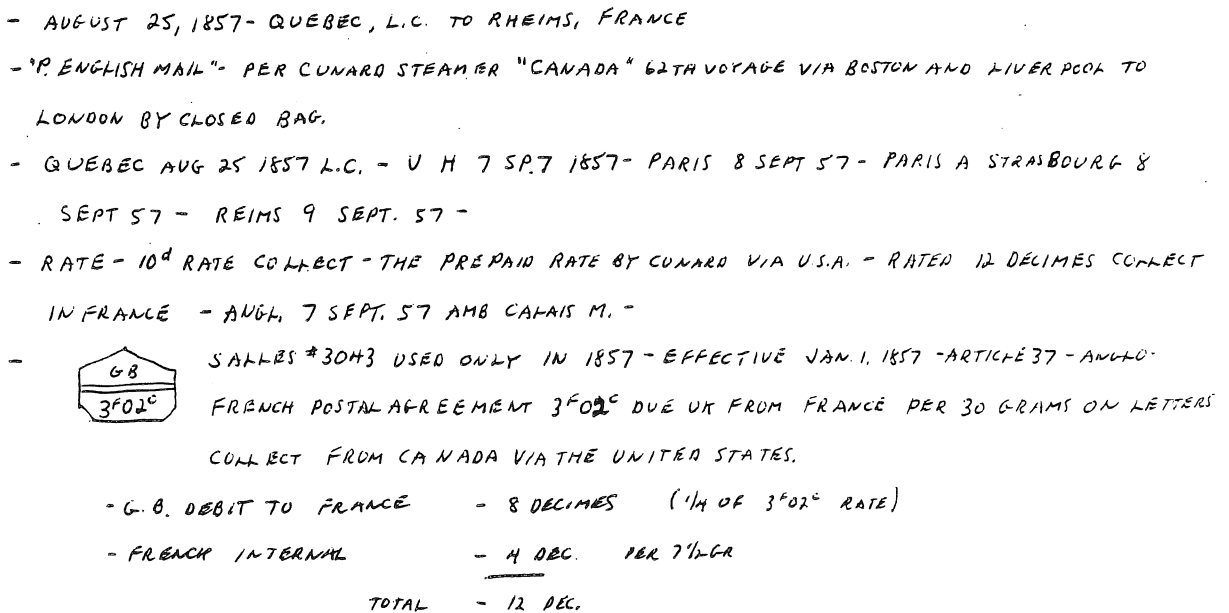 - AUGUST 25, 1857 - QUEBEC, L.C. TO RHEIMS, FRANCE
- "P. ENGLISH MAIL" - PER CUNARD STEAMER "CANADA" 62TH VOYAGE VIA BOSTON AND LIVERPOOL TO
LONDON BY CLOSED BAG.
- QUEBEC AUG 25 1857 L.C. - U H 7 SP.7 1857 - PARIS 8 SEPT 57 - PARIS A STRASBOURG 8
SEPT 57 - REIMS 9 SEPT. 57 -
- RATE - 10d RATE COLLECT - THE PREPAID RATE BY CUNARD VIA U.S.A. - RATED 12 DÉCIMES COLLECT
IN FRANCE - ANGL. 7 SEPT. 57 AMB CALAIS M. -
- GB 3F02C SALLES #3043 USED ONLY IN 1857 - EFFECTIVE JAN. 1, 1857 - ARTICLE 37 - ANGLO-
FRENCH POSTAL AGREEMENT 3F02C DUE UK FROM FRANCE PER 30 GRAMS ON LETTERS
COLLECT FROM CANADA VIA THE UNITED STATES.
- G.B. DEBIT TO FRANCE - 8 DECIMES (1/4 OF 3F02C RATE)
- FRENCH INTERNAL - 4 DEC. PER 7 1/2 GR
TOTAL - 12 DEC.